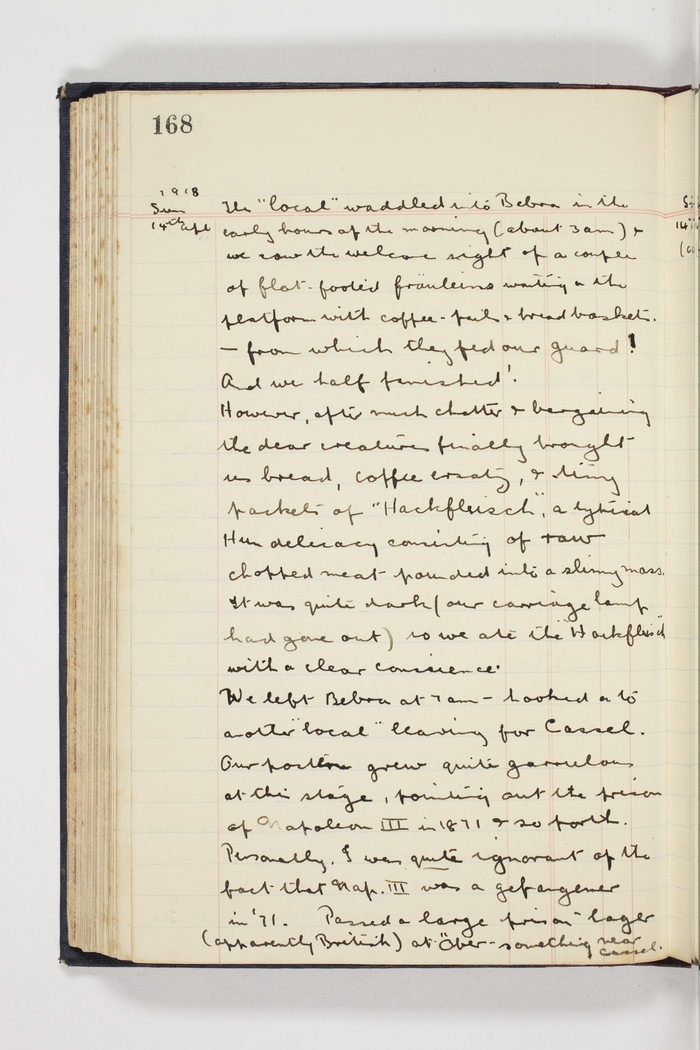 168
1918
Sun
14th Apl
The "local" waddled into Bebra in the
early hours of the morning (about 3am) &
we saw the welcome sight of a couple
of flat-footed fräuleins waiting on the
platform with coffee-pails & bread baskets.
— from which they fed our guard!
And we half famished!
However, after much chatter & bargaining
the dear creatures finally brought
us bread, coffee ersatz, & tiny
packets of "Hackfleisch", a typical
Hun delicacy consisting of raw
chopped meat pounded into a slimy mass.
It was quite dark (our carriage lamp
had gone out) so we ate the "Hackfleisch"
with a clear conscience.
We left Bebra at 7am – hooked on to
another "local" leaving for Cassel.
Our posten grew quite garrulous
at this stage, pointing out the prison
of Napoleon III in 1871 & so forth.
Personally, I was quite ignorant of the
fact that Nap. III was a gefangener
in '71. Passed a large prison lager
(apparently British) at Ober-something near
Cassel.